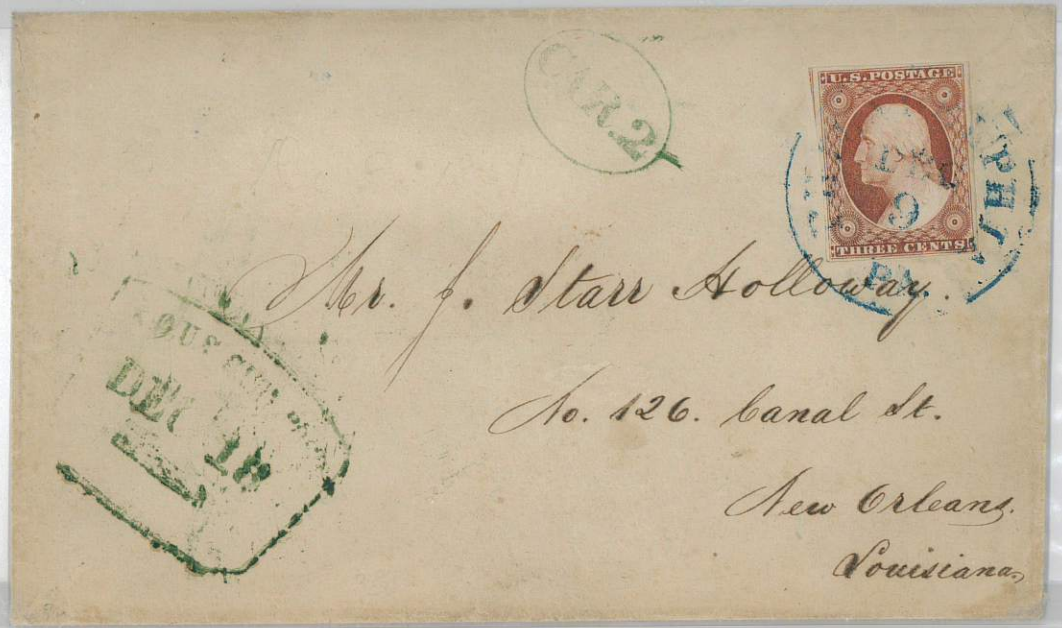 CAR. 2
U.S. POSTAGE
THREE CENTS
PHIA
DEC
9
PA.
Mr. J. Starr Holloway.
No. 126. Canal St.
New Orleans.
Louisiana,
DEC 18